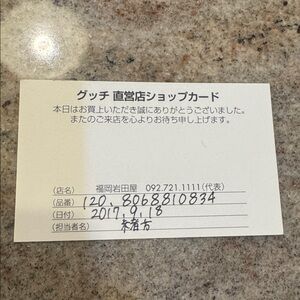 グッチ 直営店ショップカード
本日はお買上いただき誠にありがとうございました。
またのご来店を心よりお待ち申し上げます。
(店名) 福岡岩田屋 092.721.1111(代表)
(品番) 120. 8068810834
(日付) 2017. 9. 18
(担当者名)